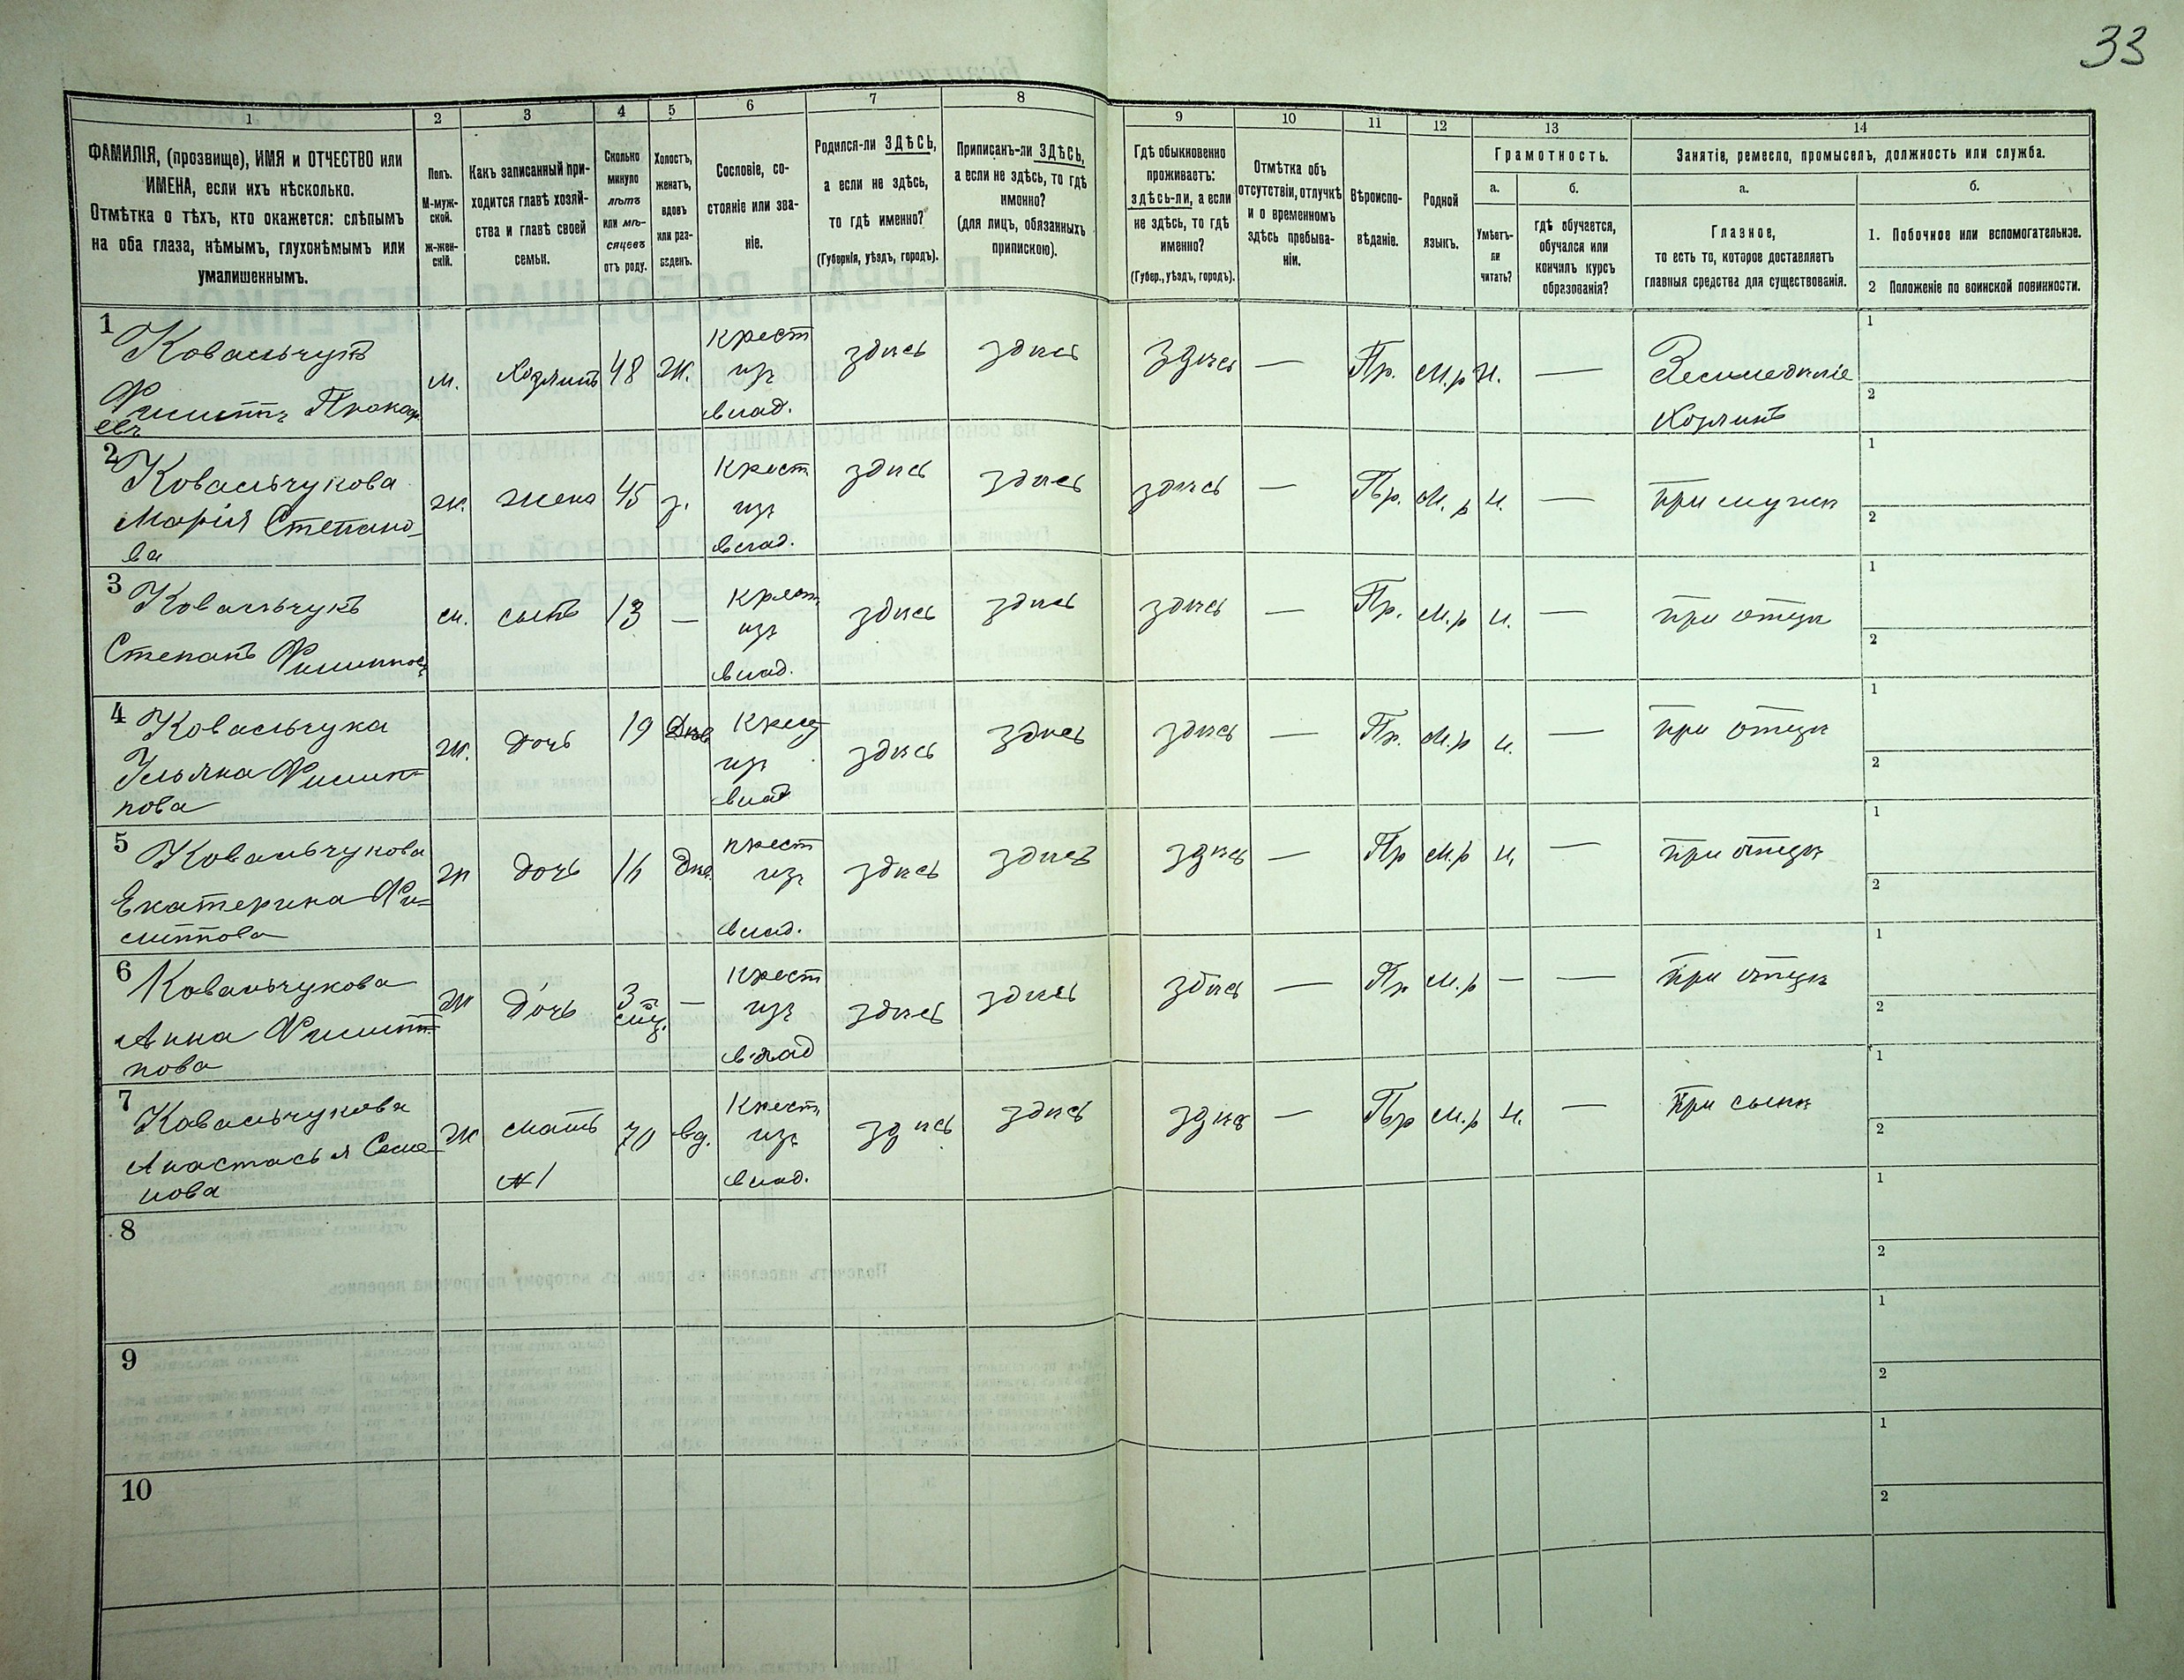 33
1
2
3
4
5
6
7
8
9
10
11
12
13
14
ФАМИЛІЯ, (прозвище), ИМЯ и ОТЧЕСТВО или
ИМЕНА, если ихъ нѣсколько.
Отмѣтка о тѣхъ, кто окажется: слѣпымъ
на оба глаза, нѣмымъ, глухонѣмымъ или
умалишеннымъ.
Полъ.
М-муж-
ской.
Ж-жен-
скій.
Какъ записанный при-
ходится главѣ хозяй-
ства и главѣ своей
семьи.
Сколько
минуло
лѣтъ
или мѣ-
сяцевъ
отъ роду.
Холостъ,
женатъ,
вдовъ
или раз-
веденъ.
Сословіе, со-
стояніе или зва-
ніе.
Родился-ли ЗДѢСЬ,
а если не здѣсь,
то гдѣ именно?
(Губернія, уѣздъ, городъ).
Приписанъ-ли ЗДѢСЬ,
а если не здѣсь, то гдѣ
именно?
(для лицъ, обязанныхъ
припискою).
Гдѣ обыкновенно
проживаетъ:
здѣсь-ли, а если
не здѣсь, то гдѣ
именно?
(Губер., уѣздъ, городъ).
Отмѣтка объ
отсутствіи, отлучкѣ
и о временномъ
здѣсь пребыва-
ніи.
Вѣроиспо-
вѣданіе.
Родной
языкъ.
Грамотность.
а.
б.
Умѣетъ-
ли
читать?
гдѣ обучается,
обучался или
кончилъ курсъ
образованія?
Занятіе, ремесло, промыселъ, должность или служба.
а.
б.
Главное,
то есть то, которое доставляетъ
главныя средства для существованія.
1. Побочное или вспомогательное.
2 Положеніе по воинской повинности.
1 Ковальчукъ
Филиппъ Прокоф
евъ
м. Хозяинъ 48 ж. крест из влад. здѣсь здѣсь здѣсь — Пр. М.р н. — Земледѣліе
Хозяинъ
1
2
2 Ковальчукова
Марія Степано-
ва
ж. жена 45 з. крест из влад. здѣсь здѣсь здѣсь — Пр. М.р н. — при мужѣ
1
2
3 Ковальчукъ
Степанъ Филиппов
м. сынъ 13 — крест из влад. здѣсь здѣсь здѣсь — Пр. М.р н. — при отцѣ
1
2
4 Ковальчука
Ульяна Филип-
пова
ж. дочь 19 Дѣв крест из влад здѣсь здѣсь здѣсь — Пр. М.р н. — при отцѣ
1
2
5 Ковальчукова
Екатерина Фи-
липпова
ж дочь 16 дѣв. крест из влад. здѣсь здѣсь здѣсь — Пр М.р н. — при отцѣ
1
2
6 Ковальчукова
Анна Филип-
пова
ж дочь 3 мѣц. — крест из влад здѣсь здѣсь здѣсь — Пр М.р — — при отцѣ
1
2
7 Ковальчукова
Анастасья Семе-
нова
ж мать 70 вд. крест из влад. здѣсь здѣсь здѣсь — Пр М.р н. — при сынѣ
№1
1
2
8
1
2
9
1
2
10
1
2